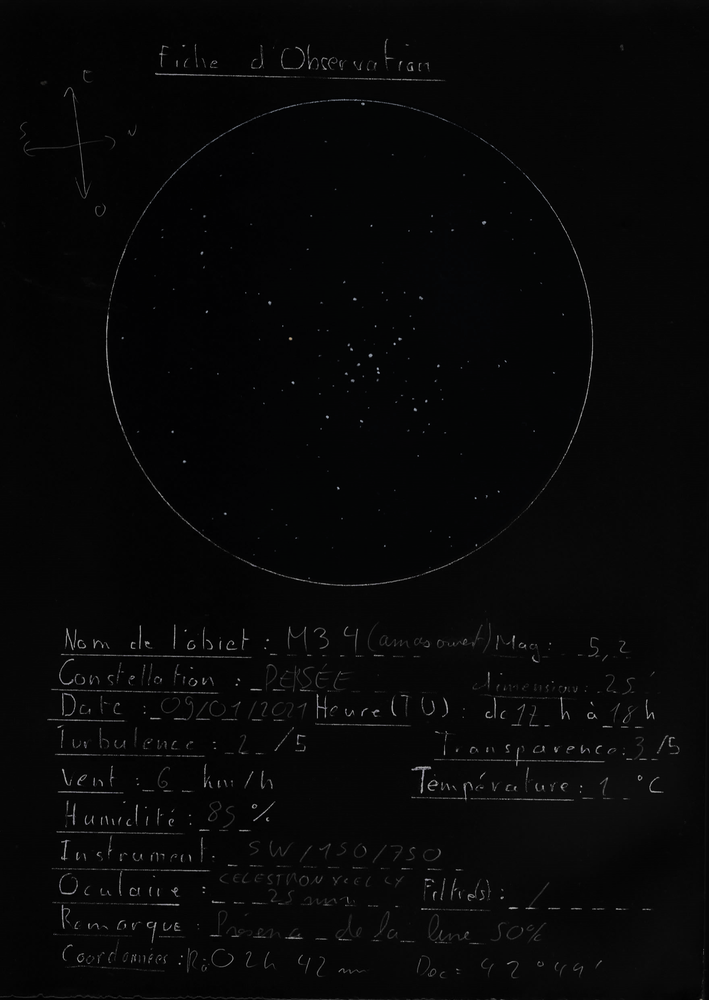 Fiche d'Observation
E
S N
O
Nom de l'objet : M34 (amas ouvert) Mag : 5,2
Constellation : PERSÉE dimension : 25'
Date : 09/01/2021 Heure (TU) : de 17 h à 18 h
Turbulence : 2 /5 Transparence : 3 /5
Vent : 6 km/h Température : 1 °C
Humidité : 85 %
Instrument : SW/150/750
Oculaire : CELESTRON X-CEL LX Filtre(s) : /
25 mm
Remarque : Présence de la lune 50%
Coordonnées : Ra : 02h 42 m Dec : 42°44'